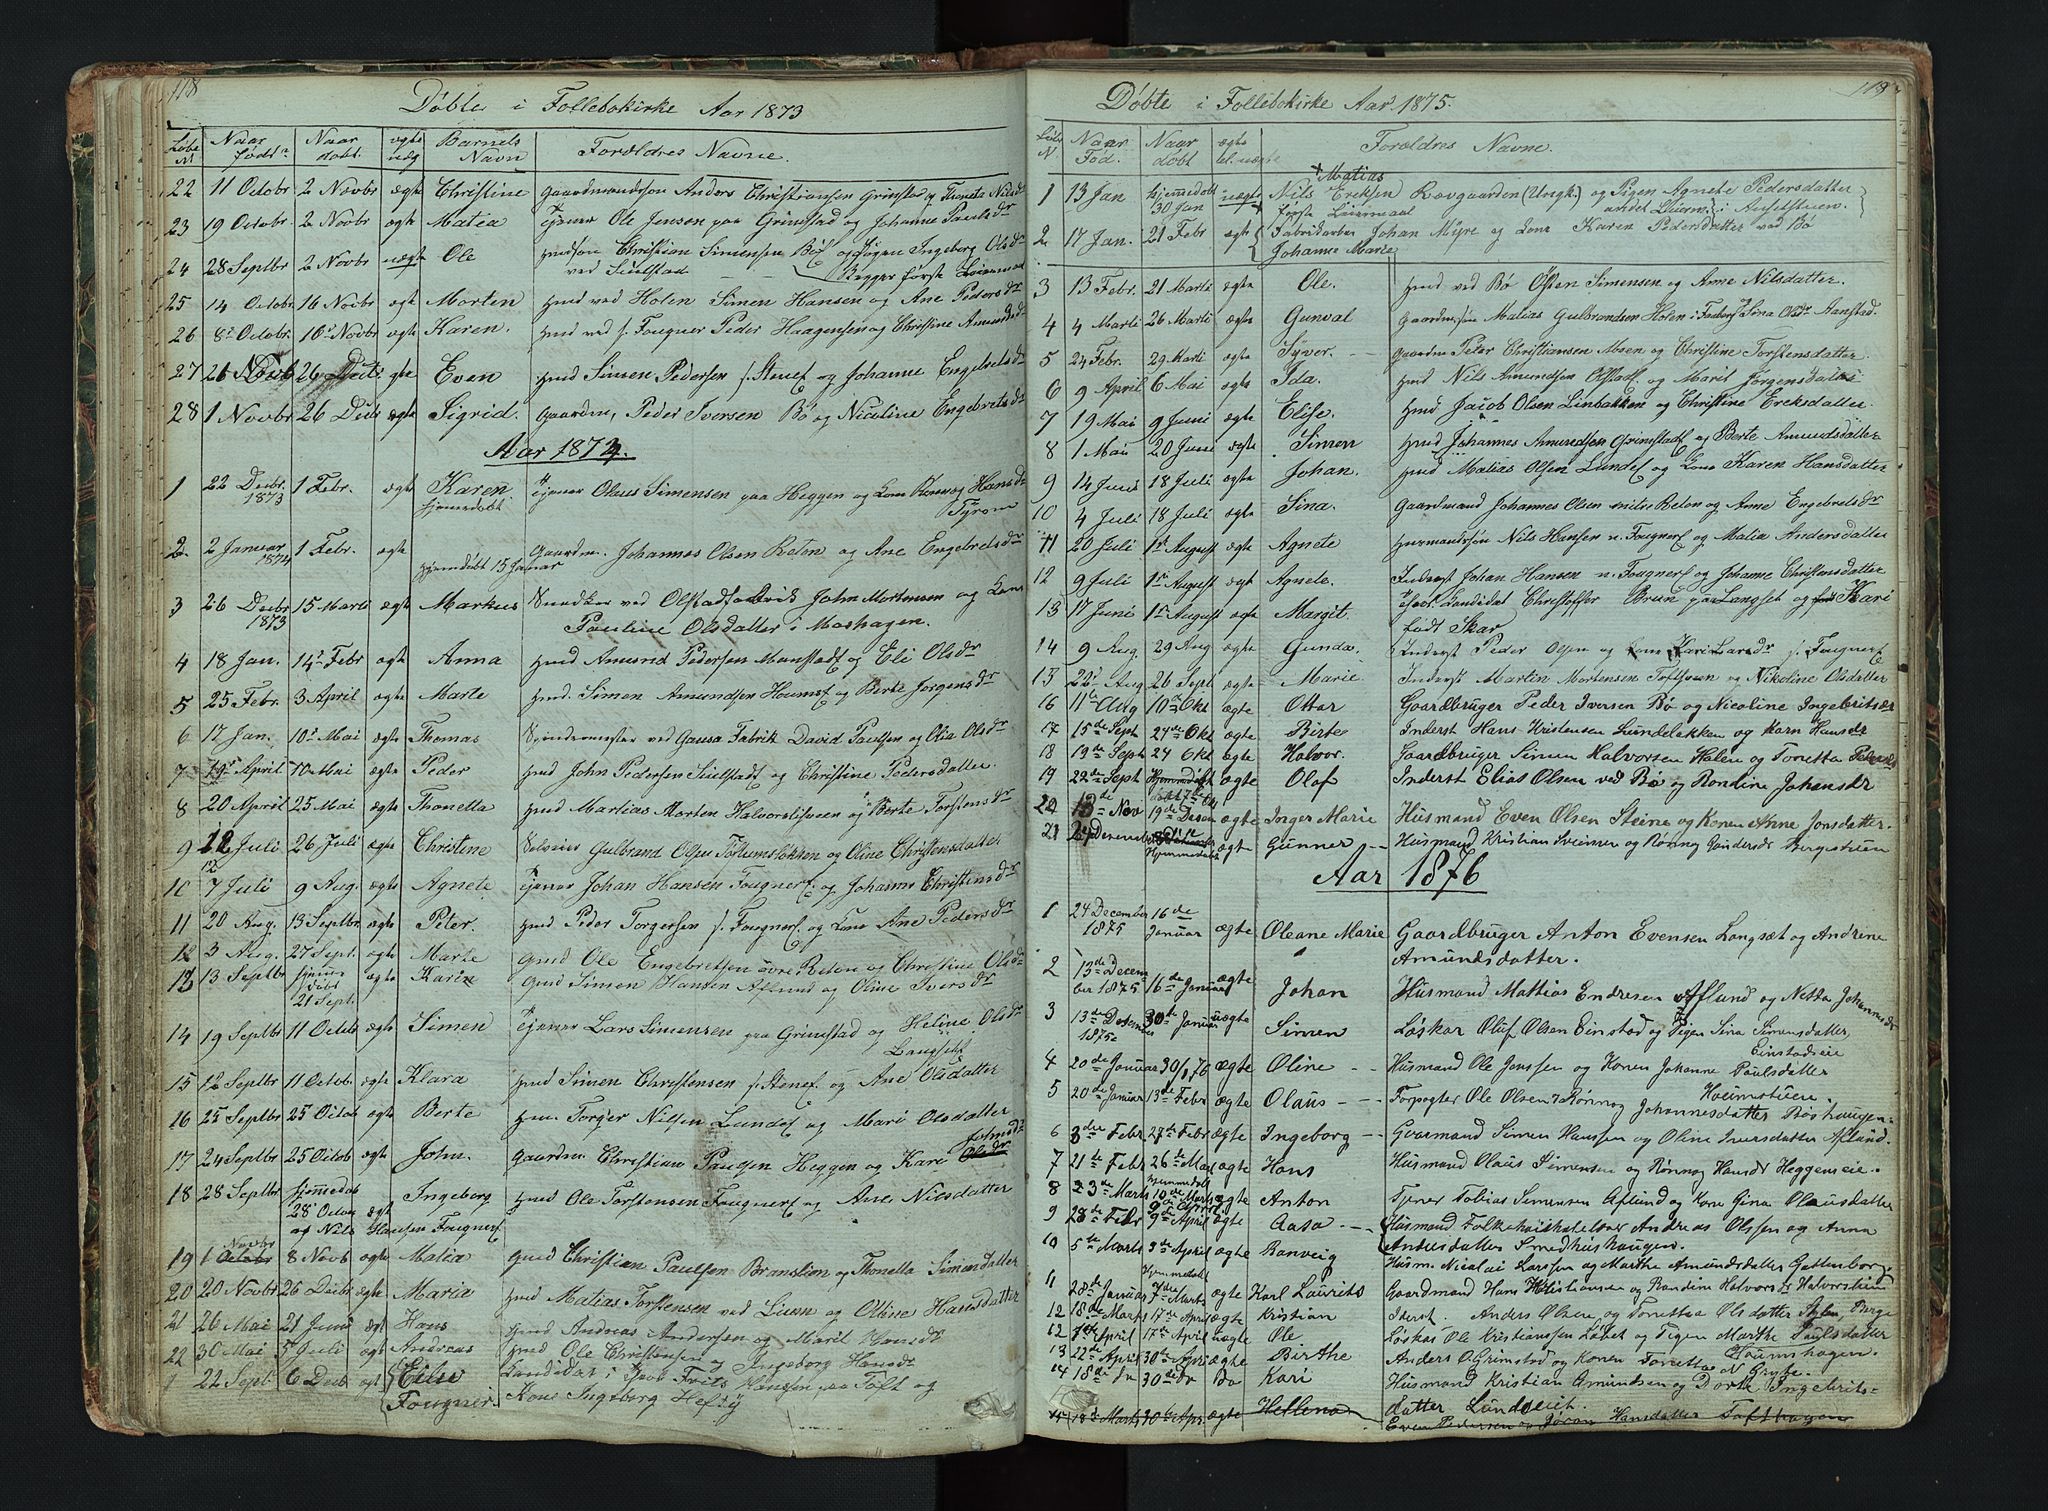 118
Döbte i Follebokirke Aar 1873
Löbe N | Naar födt | Naar döbt | ægte uæg | Barnets Navn | Forældres Navne.
22 11 Octobr 2 Novbr ægte Christine Gaardmandssön Anders Christiansen Grimstad og Tonete Nilsdr
23 19 Octobr 2 Novbr ægte Matea Tjener Ole Jensen paa Grimstad og Johanne Paulsdr
24 28 Septbr 2 Novbr uægte Ole Christian Simensen Böe og Pigen Ingeborg Olsdr
ved Sielstad Begges förste Leiermaal
25 14 Octobr 16 Novbr ægte Morten Hmd ved Holen Simen Hansen og Ane Pedersdr
26 8 Octobr 10 Novbr ægte Karen. Hmd ved Fougner Peder Haagensen og Christine Amundsdr
27 21 Novb 26 Decb ægte Even Hmd Simen Pedersen Stenef og Johanne Engebretsdr
28 1 Novbr 26 Decb ægte Sigrid. Gaardm, Peder Iversen Bö og Nicoline Engebretsdr
Aar 1874.
1 22 Decbr 1 Febr. ægte Karen Tjener Olaus Simensen paa Heggen og Kone Hansdr
1873 hjemdöbt
2 2 Januar 1 Febr. ægte Gaardm. Johannes Olsen Reton og Ane Engebretsdr
1874 hjemdöbt 15 Januar
3 26 Decbr 15 Marti ægte Markus Snedker ved Olstad John Mortensen og Kone
1873 Pauline Olsdatter i Moshagen.
4 18 Jan. 14 Febr ægte Anna Hmd Amund Pedersen Aanstadf og Eli Olsdr
5 25 Febr. 3 April ægte Marte Hmd. Simen Amundsen Houmsf og Berte Jörgensdr
6 17 Jan. 10 Mai ægte Thomas Spindemester ved Gausa Fabrik David Paulsen og Olia Olsdr
7 19 April 10 Mai ægte Peder Hmd John Pedersen Sielstadf og Christine Pedersdatter
8 20 April 25 Mai ægte Thonetta Hmd Martias Morten Halvorstsveen og Berte Torstensdr
9 12 Juli 26 Juli ægte Christine Selveier Gulbrand Olsen Toftumslökken og Oline Christensdatter
10 7 Juli 9 Aug. ægte Agnete Tjener Johan Hansen Fougner og Johanne Christensdr
11 20 Aug. 13 Septbr ægte Peter. Hmd Peder Torgersen Fougner og Kone Ane Pedersdr
12 3 Aug. 27 Sept. ægte Marte Gmd Ole Engebretsen övre Reton og Christine Olsdr
13 13 Septbr hjemdöbt ægte Karen Gmd Simen Hansen Aflund og Oline Iversdr
21 Sept.
14 19 Septbr 11 Octob ægte Simen Tjener Lars Simensen paa Grimstad og Heline Olsdr
Langsetf
15 12 Septbr 11 Octob ægte Klara Hmd Simen Christensen Stenef og Ane Olsdatter
16 25 Septbr 25 Octob ægte Berte Hm. Torger Nilsen Lundef og Mari Olsdatter
17 24 Septbr 25 Octob ægte John. Gaardm Christian Paulsen Heggen og Kari Olsdr Johnsdr
18 28 Septbr hjemmedöb Ingeborg Hmd Ole Torstensen Fougnerf og Ane Nielsdatter
28 Octob ægte
og Nils Hansen Fougner
19 1 Octobr Novbr 8 Novb ægte Matea Hmd Christian Paulsen Branslien og Thonetta Simensdatter
20 20 Novbr 26 Decbr ægte Maria Hmd Matias Torstensen ved Liesn og Oline Hansdatter
21 26 Mai 21 Juni ægt Hans Hmd Andreas Andersen og Marit Hansdt
22 30 Mai 5 Juli ægt Andreas Hmd Ole Christensen og Ingeborg Hansdt
1 22 Sept 6 Decb ægt Eilir Kandidat Jacob Frits Hansen paa Toft og
Fougner. Kone Ingeborg Hefty
119
Döbte i Follebokirke Aar 1875.
Löbe N. | Naar Föd. | Naar döbt | ægte el. uægte | Forældres Navne.
Matias
1 13 Jan hjemedöbt 30 Jan uægte Nils Ereksen Rovgaarden (Ungk.) og Pigen Agnete Pedersdatter
förste Leiermaal andet Leierm. i Aulststuen.
2 17 Jan. 21 Febr ægte Fabrikarber Johan Myre og Kone Karen Pedersdatter ved Bö
Johanne Marie
3 13 Febr. 21 Marti ægte Ole. Hmd ved Bö Osten Simensen og Anne Nilsdatter.
4 4 Marti 26 Marti ægte Gunval Gaardmsön Matias Gulbrandsen Holen i Foberg Sina Olsdr Aanstad.
5 24 Febr. 29 Marti ægte Syver. Gaardm Peter Christiansen Moen og Christine Torstensdatter
6 9 April 6 Mai ægte Ida. Hmd Nils Amundsen Olstadf og Marit Jörgensdatter
7 19 Mai 9 Juni ægte Elise. Hmd Jacob Olsen Linbakken og Christine Ereksdatter
8 1 Mai 20 Juni ægte Simen Hmd Johannes Amundsen Grimstadf og Berte Amundsdatter
9 14 Juni 18 Juli ægte Johan. Hmd Matias Olsen Lundef og Kone Karen Hansdatter
10 4 Juli 18 Juli ægte Sina. Gaardmand Johannes Olsen nitre Reton og Anne Engebretsdr
11 20 Juli 1 August ægte Agnete Husmandssön Nils Hansen u. Fougner og Matia Andersdatter
12 9 Juli 1 August ægt Agnete. Inderst Johan Hansen u. Fougnerf og Johanne Christensdatter
13 17 Juni 1 August ægte Margit. Kandidat Christoffer Brun paa Langset og Kari
födt Skar
14 9 Aug. 29 Aug ægte Gunda. Inderst Peder Olsen og Kone Kari Larsdr Fougner
15 22 Aug 26 Sept ægte Marie Inderst Martin Mortensen Toftsveen og Nikoline Olsdatter
16 11te Aug 10de Okt ægte Ottar Gaardbruger Peder Iversen Bö og Nicoline Ingebritsdr
17 15de Sept 24de Okt ægte Birte Inderst Hans Kristensen Lundeløkken og Karn Hansdr
18 19de Sept 24 Okt ægte Halvor. Gaardbruger Simen Halvorsen Holen og Tonetta Pedersdr
19 22de Sept Hjemmedöbt ægte Olaf Inderst Elias Olsen ved Bö og Rondine Johansdr
20 13de Nov 19de Decem ægte Inger Marie Husmand Even Olsen Steine og Konen Anne Jonsdatter.
21 24 Decemb Hjemmedöbt ægte Gunner Husmand Kristian Sveiner og Rønnog Bergestuen
Aar 1876
1 24 December 16de
1875 Januar ægte Oleane Marie Gaardbruger Anton Evensen Langsæt og Andrine
Amundsdatter.
2 13de Decem
ber 1875 16de Januar ægte Johan Husmand Mattias Endresen Aflund og Netta Johannesdr
3 13de December 30de Januar uægte Simen Løskar Oluf Olsen Einstad og Pigen Sina Simensdatter
1875 Einstadeie
4 20de Januar 30/1 76 ægte Oline Husmand Ole Jenssen og Konen Johanne Paulsdatter
Houmstuen.
5 20de Januar 13de Febr ægte Olaus Forpagter Ole Olsen Rønnog Johannesdatter Böshaugen
6 3die Febr 27de Febr ægte Ingeborg Gaarmand Simen Hanssen og Oline Iversdatter Aflund.
7 21de Febr 26de Mars ægte Hans Husmand Olaus Simensen og Rønnog Hansdt Heggeneie.
8 23de Marts Hjemmedöbt 10de Marts ægte Anton Tjener Tobias Simensen Aflund og Kone Gina Olausdatter
9 28de Febr 9de April ægte Aasa Husmand Folkehøiskolelærer Andreas Olssen og Anna
Andersdatter Smedhushaugen.
10 5te Marts 3de April ægte Ranveig Husm. Nicolai Larssen og Marthe Amundsdatter Gottenborg.
11 28de Januar Hjemmedöbt 7de Marts ægte Karl Laurits Gaardmand Hans Kristiansen og Randine Halvorsdt Halvorstuen
12 18de Marts 17de April ægte Kristian Iderst. Anders Olsen og Tonetta Olsdatter Berge
12 7de April 17de April uægte Ole Løskar Ole Kristianssen Löbet og Pigen Marthe Paulsdatter
Houmshagen.
13 22de April 30te April ægte Birthe Anders O. Grimstad og Konen Tonetta N. Grythe.
14 18de do 30de do do Kari Husmand Kristian Amundsen og Dorte Ingebrits-
datter Lundeeiet.
15 18de Marts 30te Apr ægte Hellena Even Pedersen og Jøran Hansdatter Tofthagen